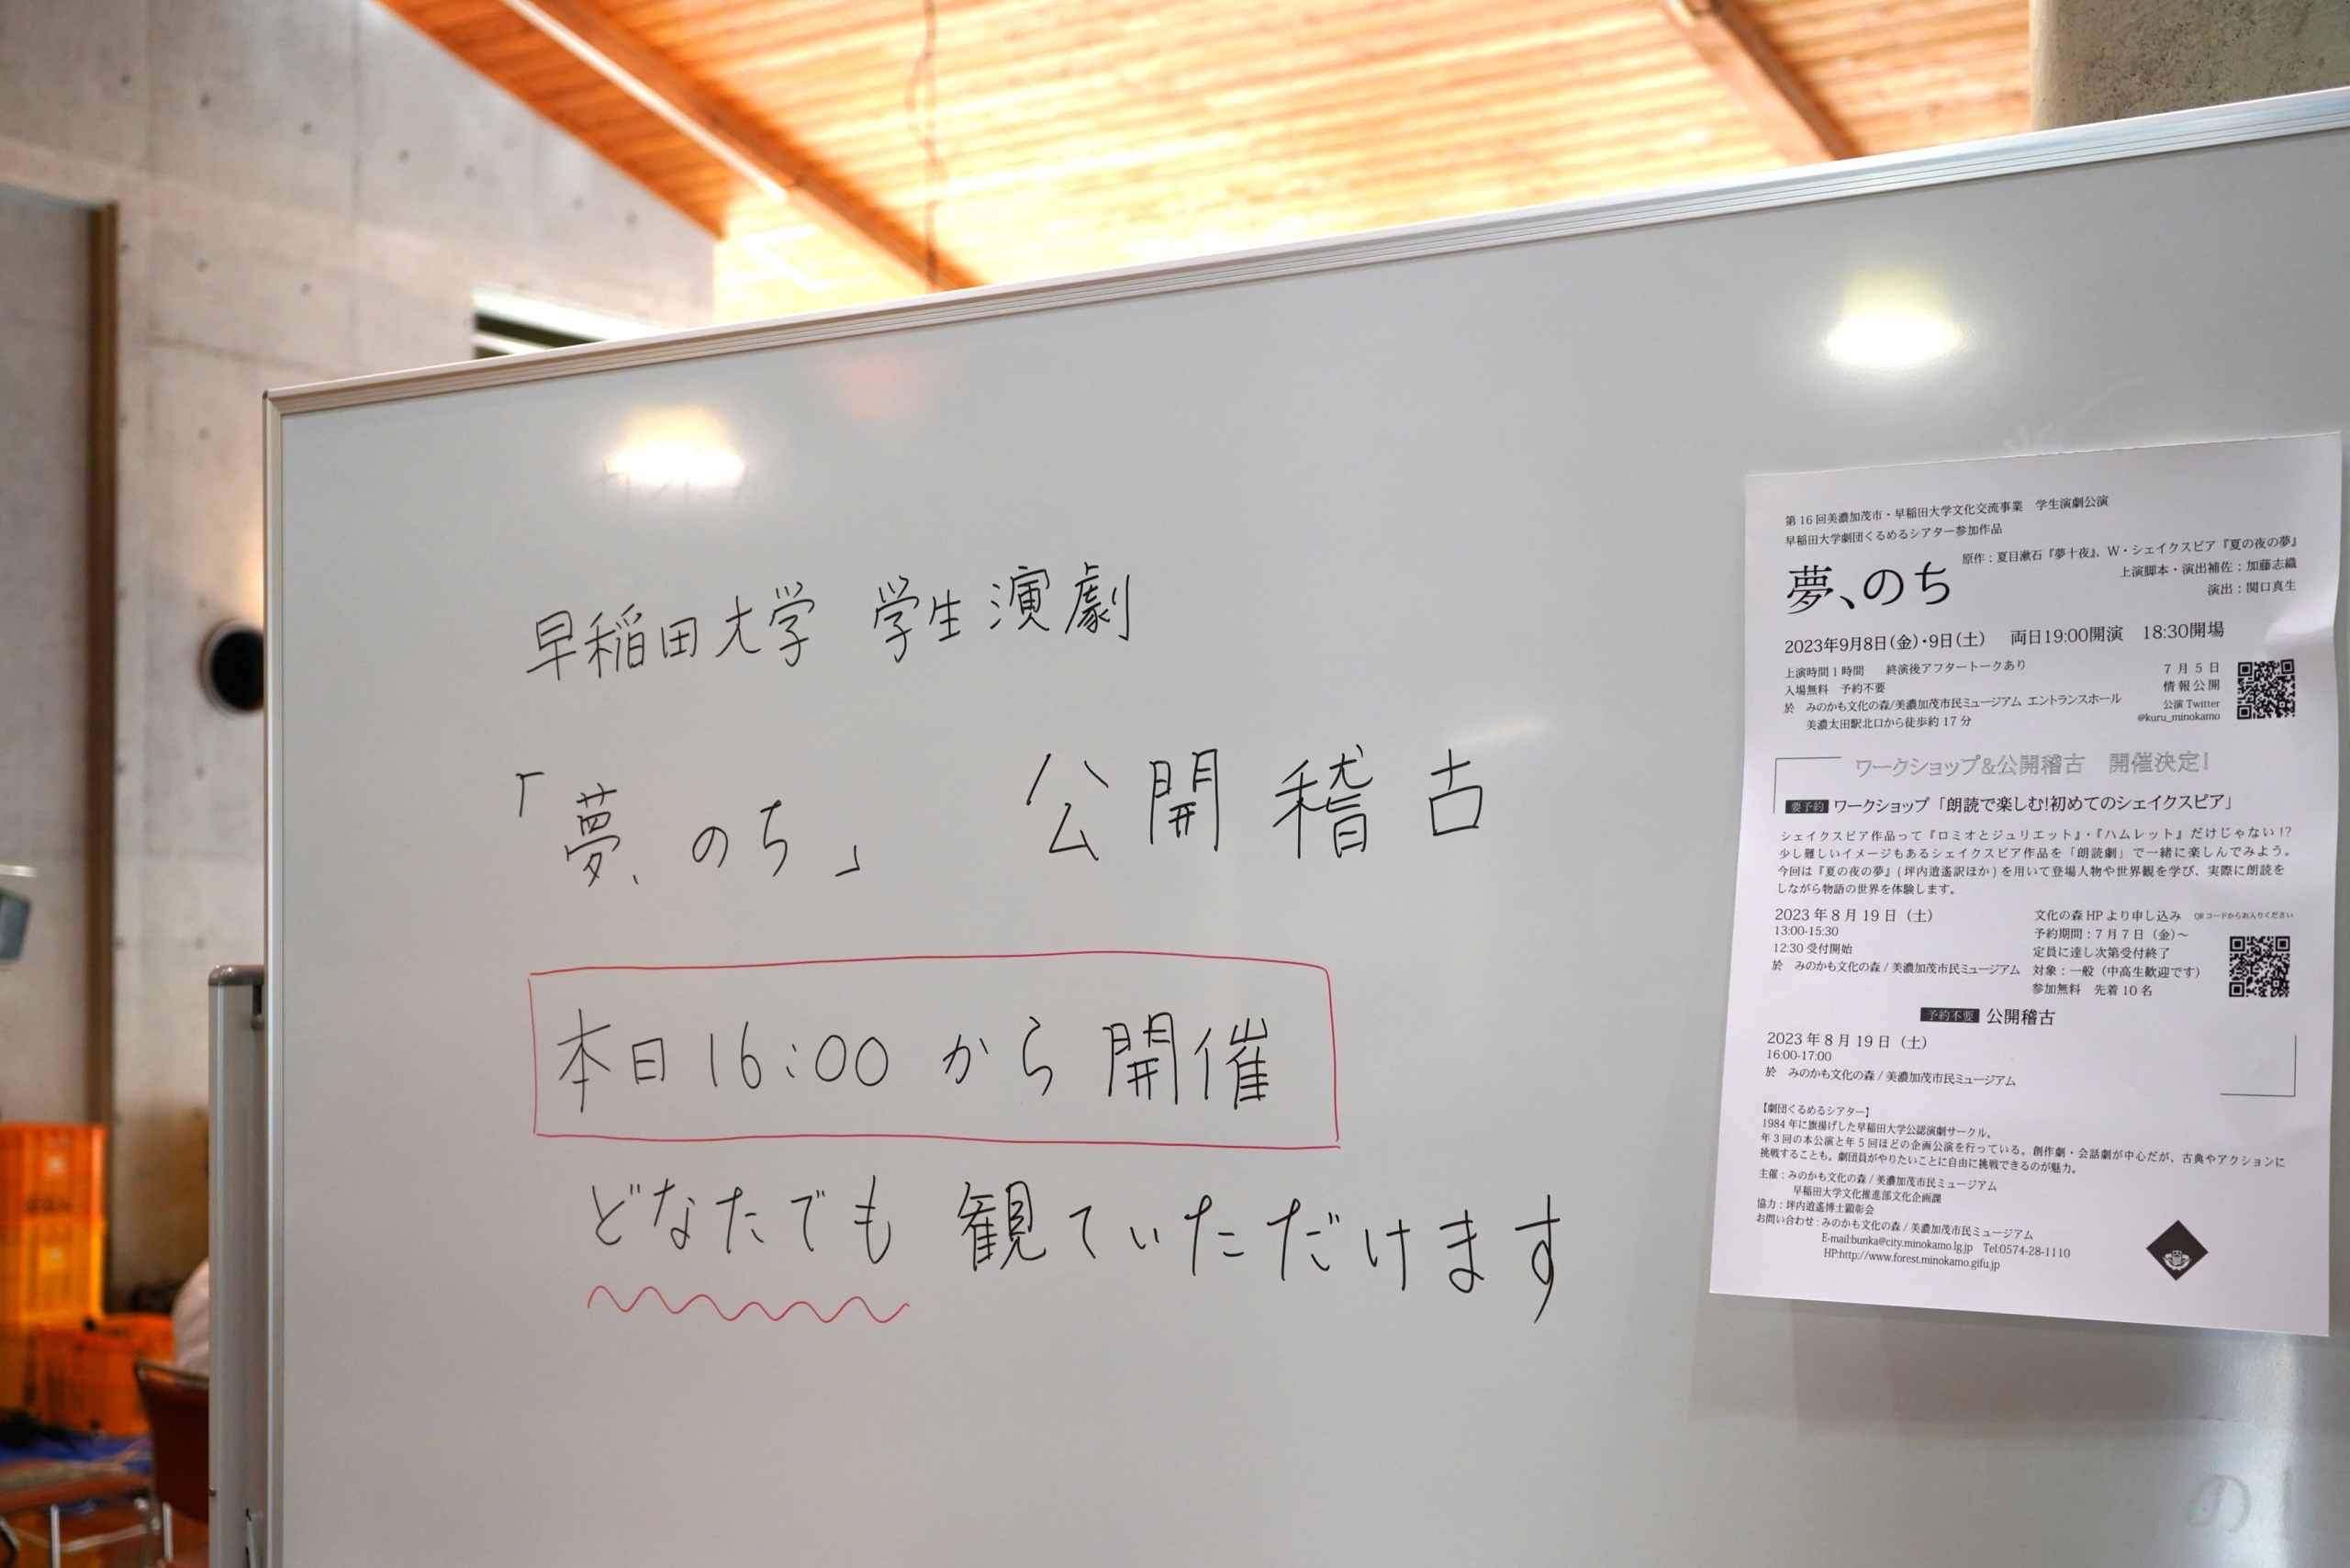 早稲田大学 学生演劇
「夢、のち」 公開稽古
本日16:00から開催
どなたでも 観ていただけます
第16回美濃加茂市・早稲田大学文化交流事業 学生演劇公演
早稲田大学劇団くるめるシアター参加作品
原作：夏目漱石『夢十夜』、W・シェイクスピア『夏の夜の夢』
上演脚本・演出補佐：加藤志織
演出：関口真生
夢、のち
2023年9月8日(金)・9日(土) 両日19:00開演 18:30開場
上演時間1時間 終演後アフタートークあり
入場無料 予約不要
於 みのかも文化の森/美濃加茂市民ミュージアム エントランスホール
美濃太田駅北口から徒歩約17分
7月5日
情報公開
公演Twitter
@kuru_minokamo
ワークショップ&公開稽古 開催決定！
要予約 ワークショップ「朗読で楽しむ!初めてのシェイクスピア」
シェイクスピア作品って『ロミオとジュリエット』・『ハムレット』だけじゃない!?
少し難しいイメージもあるシェイクスピア作品を「朗読劇」で一緒に楽しんでみよう。
今回は『夏の夜の夢』(坪内逍遙訳ほか)を用いて登場人物や世界観を学び、実際に朗読を
しながら物語の世界を体験します。
2023年8月19日（土）
13:00-15:30
12:30受付開始
於 みのかも文化の森/美濃加茂市民ミュージアム
文化の森HPより申し込み QRコードからお入りください
予約期間：7月7日（金）〜
定員に達し次第受付終了
対象：一般（中高生歓迎です）
参加無料 先着10名
予約不要 公開稽古
2023年8月19日（土）
16:00-17:00
於 みのかも文化の森/美濃加茂市民ミュージアム
【劇団くるめるシアター】
1984年に旗揚げした早稲田大学公認演劇サークル。
年3回の本公演と年5回ほどの企画公演を行っている。創作劇・会話劇が中心だが、古典やアクションに
挑戦することも。劇団員がやりたいことに自由に挑戦できるのが魅力。
主催：みのかも文化の森/美濃加茂市民ミュージアム
早稲田大学文化推進部文化企画課
協力：坪内逍遙博士顕彰会
お問い合わせ：みのかも文化の森/美濃加茂市民ミュージアム
E-mail:bunka@city.minokamo.lg.jp Tel:0574-28-1110
HP:http://www.forest.minokamo.gifu.jp